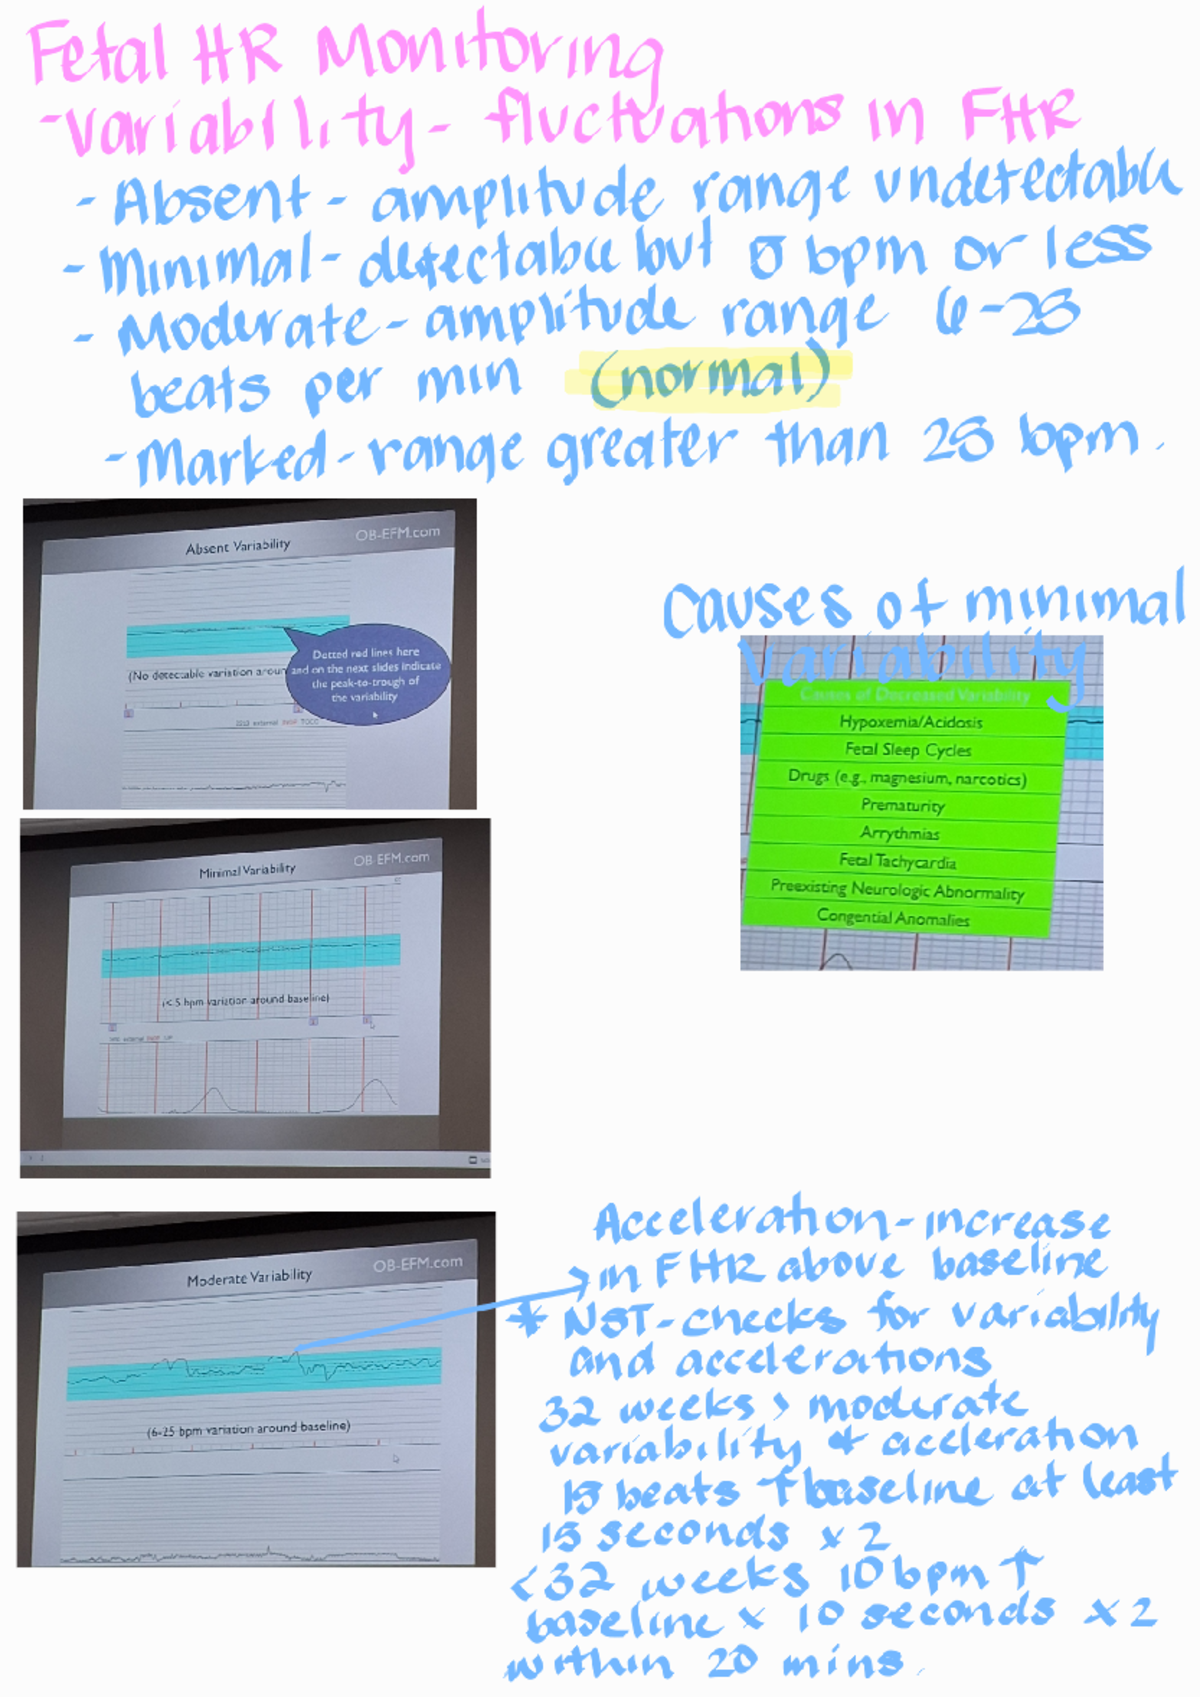 Fetal HR Monitoring
- Variability - fluctuations in FHR
- Absent - amplitude range undetectable
- Minimal - detectable but 5 bpm or less
- Moderate - amplitude range 6-25
beats per min (normal)
- Marked - range greater than 25 bpm.
Absent Variability
OB-EFM.com
Dotted red lines here
and on the next slides indicate
the peak-to-trough of
the variability
(No detectable variation aroun
Minimal Variability
OB-EFM.com
(< 5 bpm variation around baseline)
Moderate Variability
OB-EFM.com
(6-25 bpm variation around baseline)
Causes of minimal
variability
Causes of Decreased Variability
Hypoxemia/Acidosis
Fetal Sleep Cycles
Drugs (e.g., magnesium, narcotics)
Prematurity
Arrythmias
Fetal Tachycardia
Preexisting Neurologic Abnormality
Congential Anomalies
Acceleration - increase
in FHR above baseline
* NST - checks for variability
and accelerations
32 weeks > moderate
variability + acceleration
15 beats ↑ baseline at least
15 seconds x 2
<32 weeks 10 bpm ↑
baseline x 10 seconds x 2
within 20 mins.